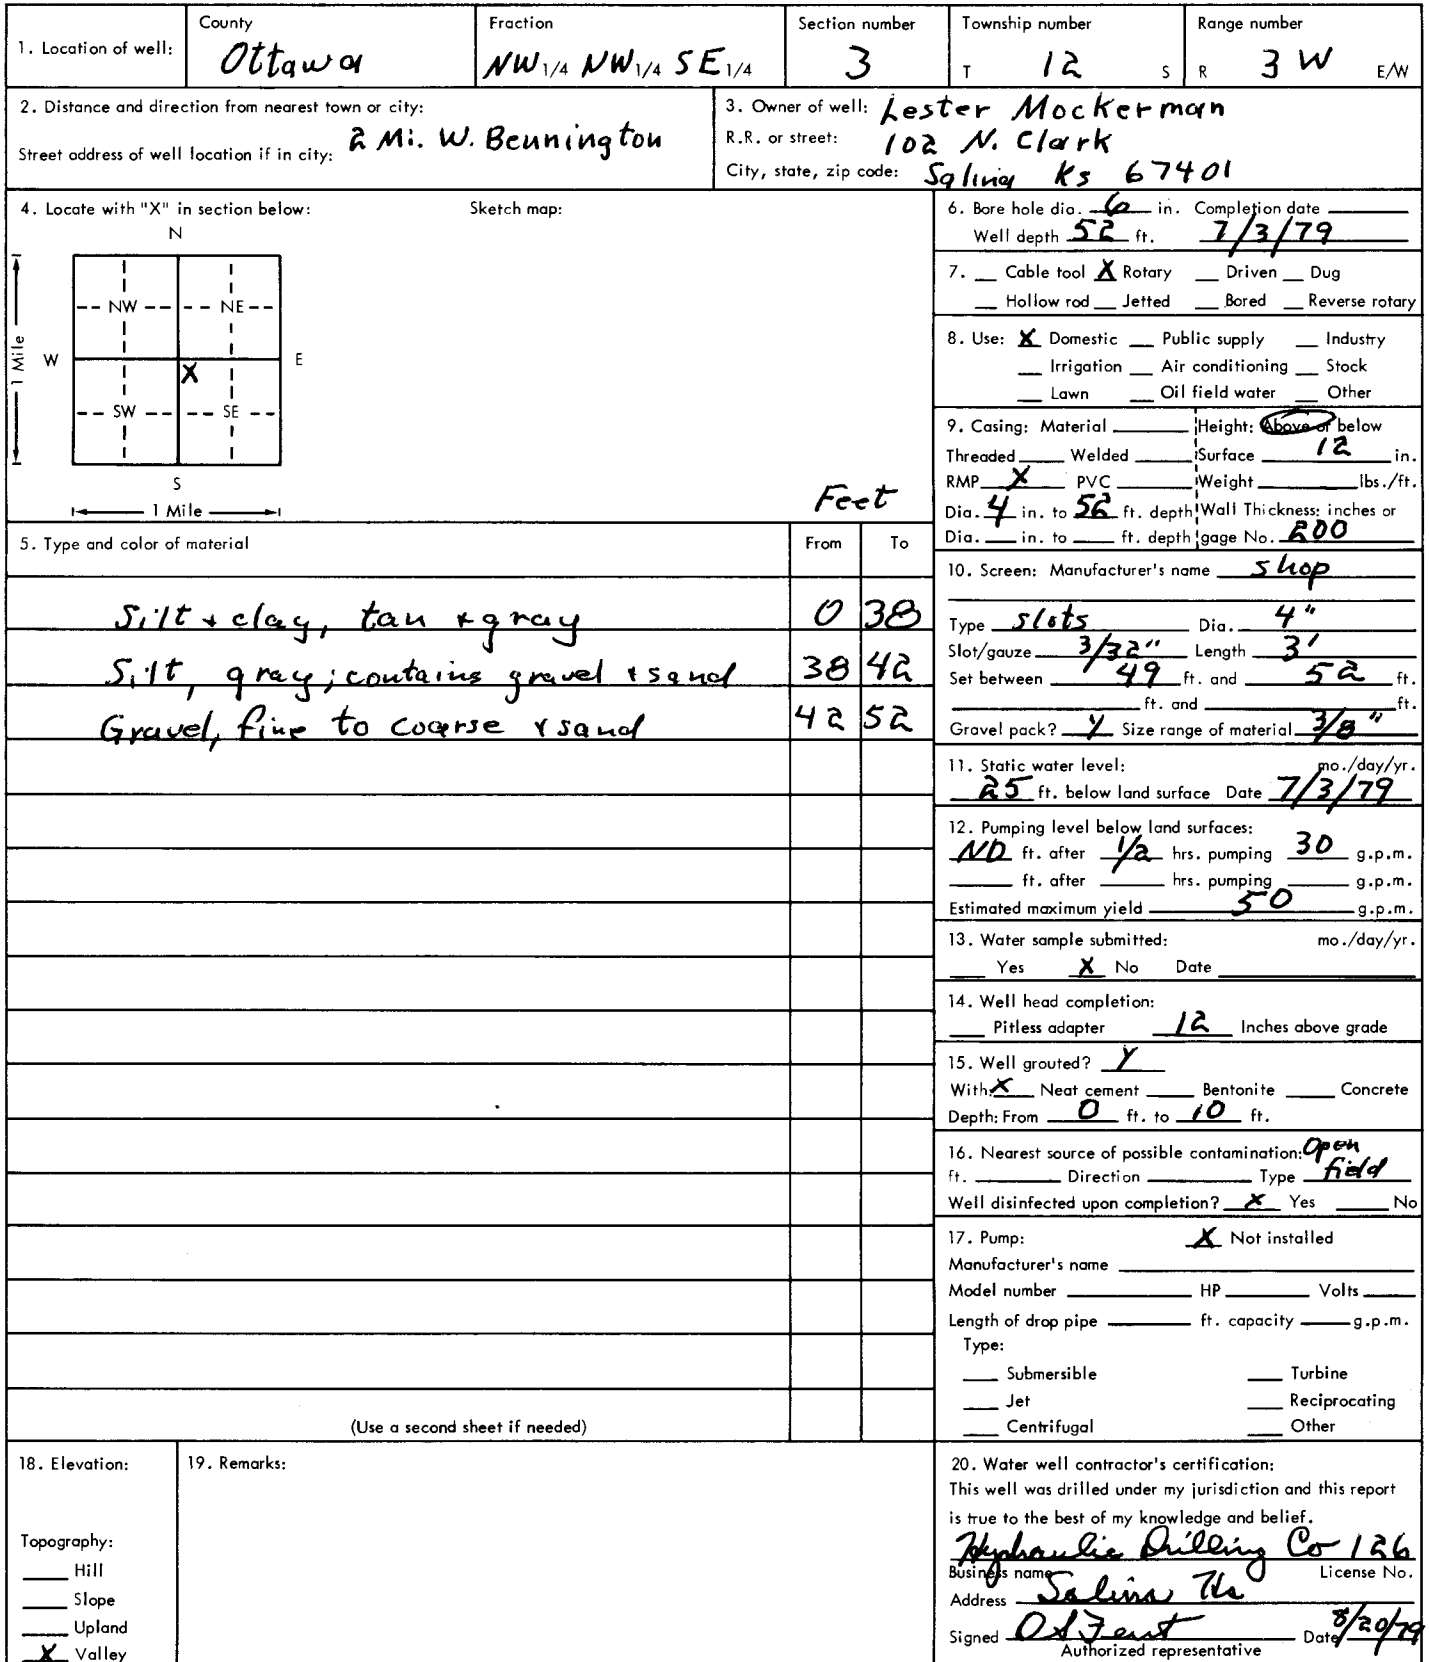 1. Location of well: County Ottawa Fraction NW 1/4 NW 1/4 SE 1/4 Section number 3 Township number T 12 S Range number R 3 W E/W
2. Distance and direction from nearest town or city: 2 Mi. W. Bennington
Street address of well location if in city:
3. Owner of well: Lester Mockerman
R.R. or street: 102 N. Clark
City, state, zip code: Salina Ks 67401
4. Locate with "X" in section below: Sketch map:
N
NW NE
1 Mile W E
X
SW SE
S
1 Mile
Feet
5. Type and color of material From To
Silt + clay, tan + gray 0 38
Silt, gray; contains gravel + sand 38 42
Gravel, fine to coarse + sand 42 52
(Use a second sheet if needed)
6. Bore hole dia. 6 in. Completion date
Well depth 52 ft. 7/3/79
7. Cable tool X Rotary Driven Dug
Hollow rod Jetted Bored Reverse rotary
8. Use: X Domestic Public supply Industry
Irrigation Air conditioning Stock
Lawn Oil field water Other
9. Casing: Material Height: Above or below
Threaded Welded Surface 12 in.
RMP X PVC Weight lbs./ft.
Dia. 4 in. to 52 ft. depth Wall Thickness: inches or
Dia. in. to ft. depth gage No. 200
10. Screen: Manufacturer's name Shop
Type slots Dia. 4"
Slot/gauze 3/32" Length 3'
Set between 49 ft. and 52 ft.
ft. and ft.
Gravel pack? Y Size range of material 3/8"
11. Static water level: mo./day/yr.
25 ft. below land surface Date 7/3/79
12. Pumping level below land surfaces:
ND ft. after 1/2 hrs. pumping 30 g.p.m.
ft. after hrs. pumping g.p.m.
Estimated maximum yield 50 g.p.m.
13. Water sample submitted: mo./day/yr.
Yes X No Date
14. Well head completion:
Pitless adapter 12 Inches above grade
15. Well grouted? Y
With: X Neat cement Bentonite Concrete
Depth: From 0 ft. to 10 ft.
16. Nearest source of possible contamination: Open
ft. Direction Type field
Well disinfected upon completion? X Yes No
17. Pump: X Not installed
Manufacturer's name
Model number HP Volts
Length of drop pipe ft. capacity g.p.m.
Type:
Submersible Turbine
Jet Reciprocating
Centrifugal Other
18. Elevation:
Topography:
Hill
Slope
Upland
X Valley
19. Remarks:
20. Water well contractor's certification:
This well was drilled under my jurisdiction and this report
is true to the best of my knowledge and belief.
Hydraulic Drilling Co 126
Business name License No.
Address Salina Ks
Signed Date 8/20/79
Authorized representative